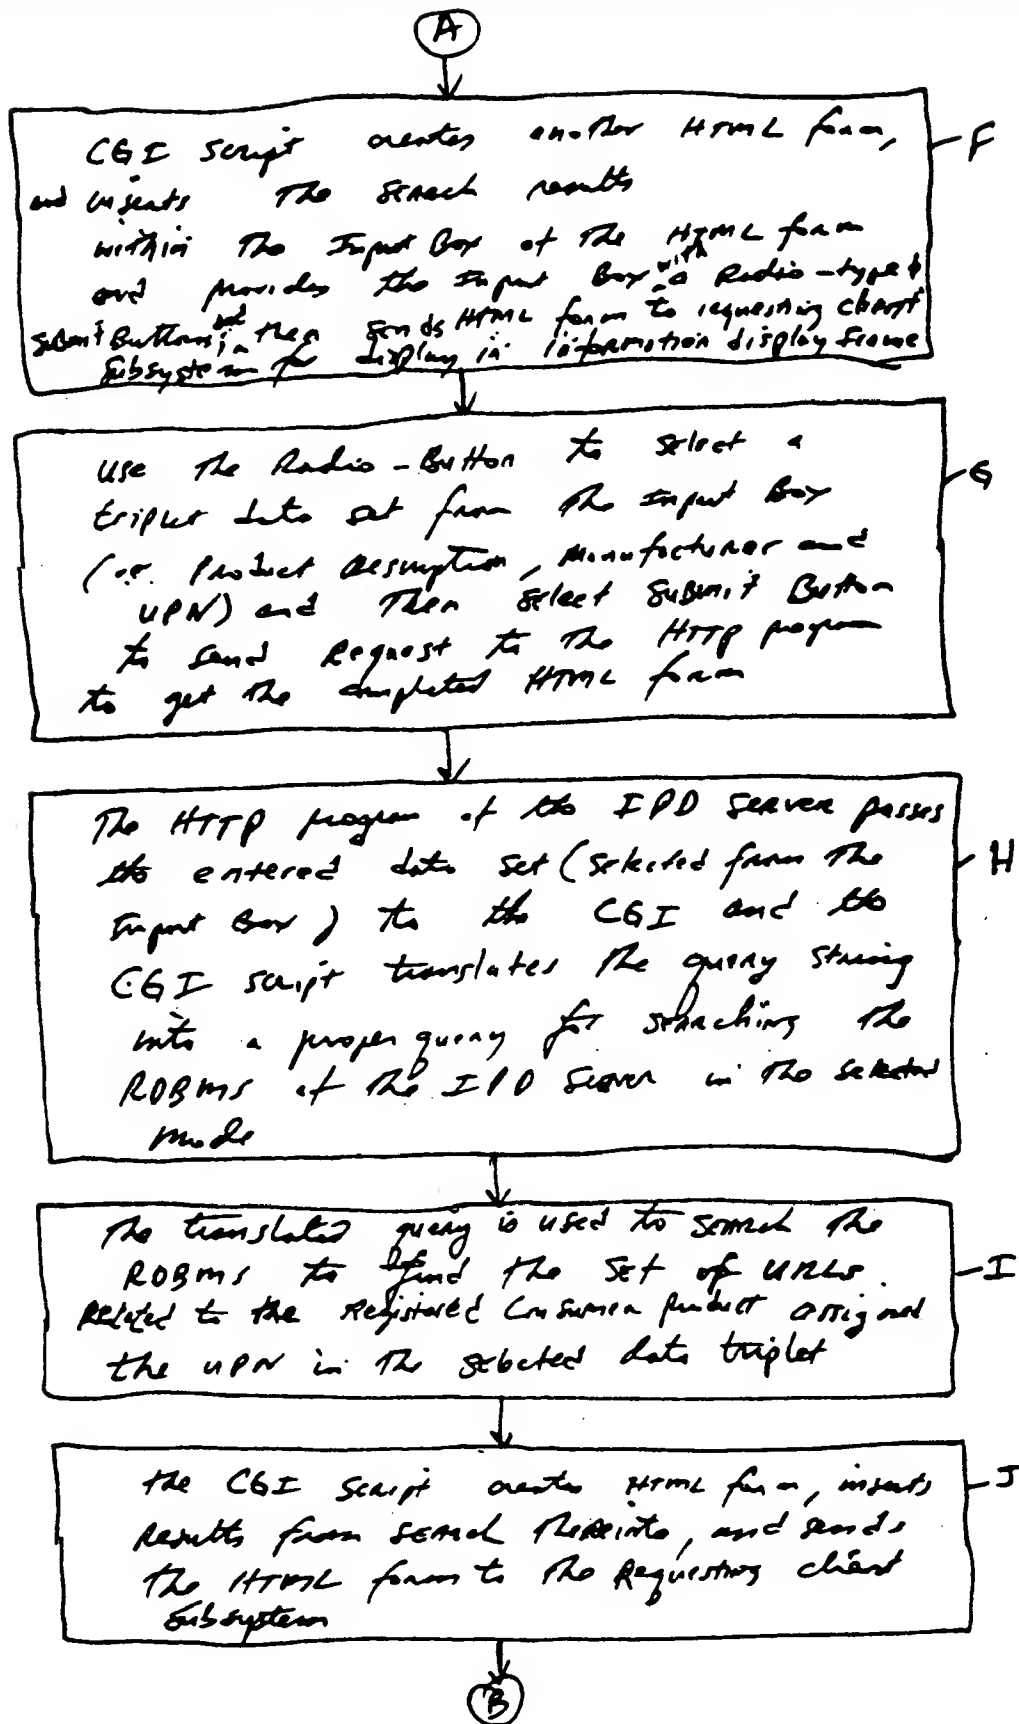 A
CGI script creates another HTML form,
F
and inserts the search results
within the Input Box of the HTML form
and provides the Input Box with a Radio-type &
Submit Buttons; and then sends HTML form to requesting client
Subsystem for display in information display frame
Use the Radio-Button to select a
G
triplet data set from the Input Box
(i.e. Product Description, Manufacturer and
UPN) and then select Submit Button
to send Request to the HTTP program
to get the completed HTML form
The HTTP program of the IPD Server passes
the entered data set (selected from the
H
Input Box) to the CGI and the
CGI script translates the query string
into a proper query for searching the
RDBMS of the IPD Server in the selected
mode
The translated query is used to search the
RDBMS to find the set of URLs
I
Related to the Registered Consumer product assigned
the UPN in the selected data triplet
the CGI script creates HTML form, inserts
J
Results from search thereinto, and sends
the HTML form to the Requesting client
Subsystem
B